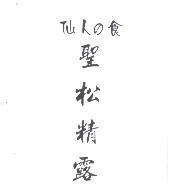 仙人の食
聖松精露